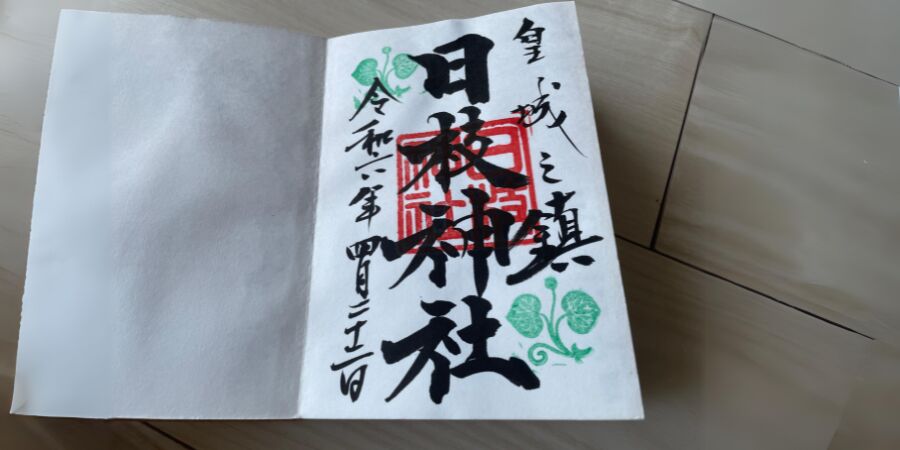 皇城之鎮
日枝神社
日枝神社
令和六年四月二十二日